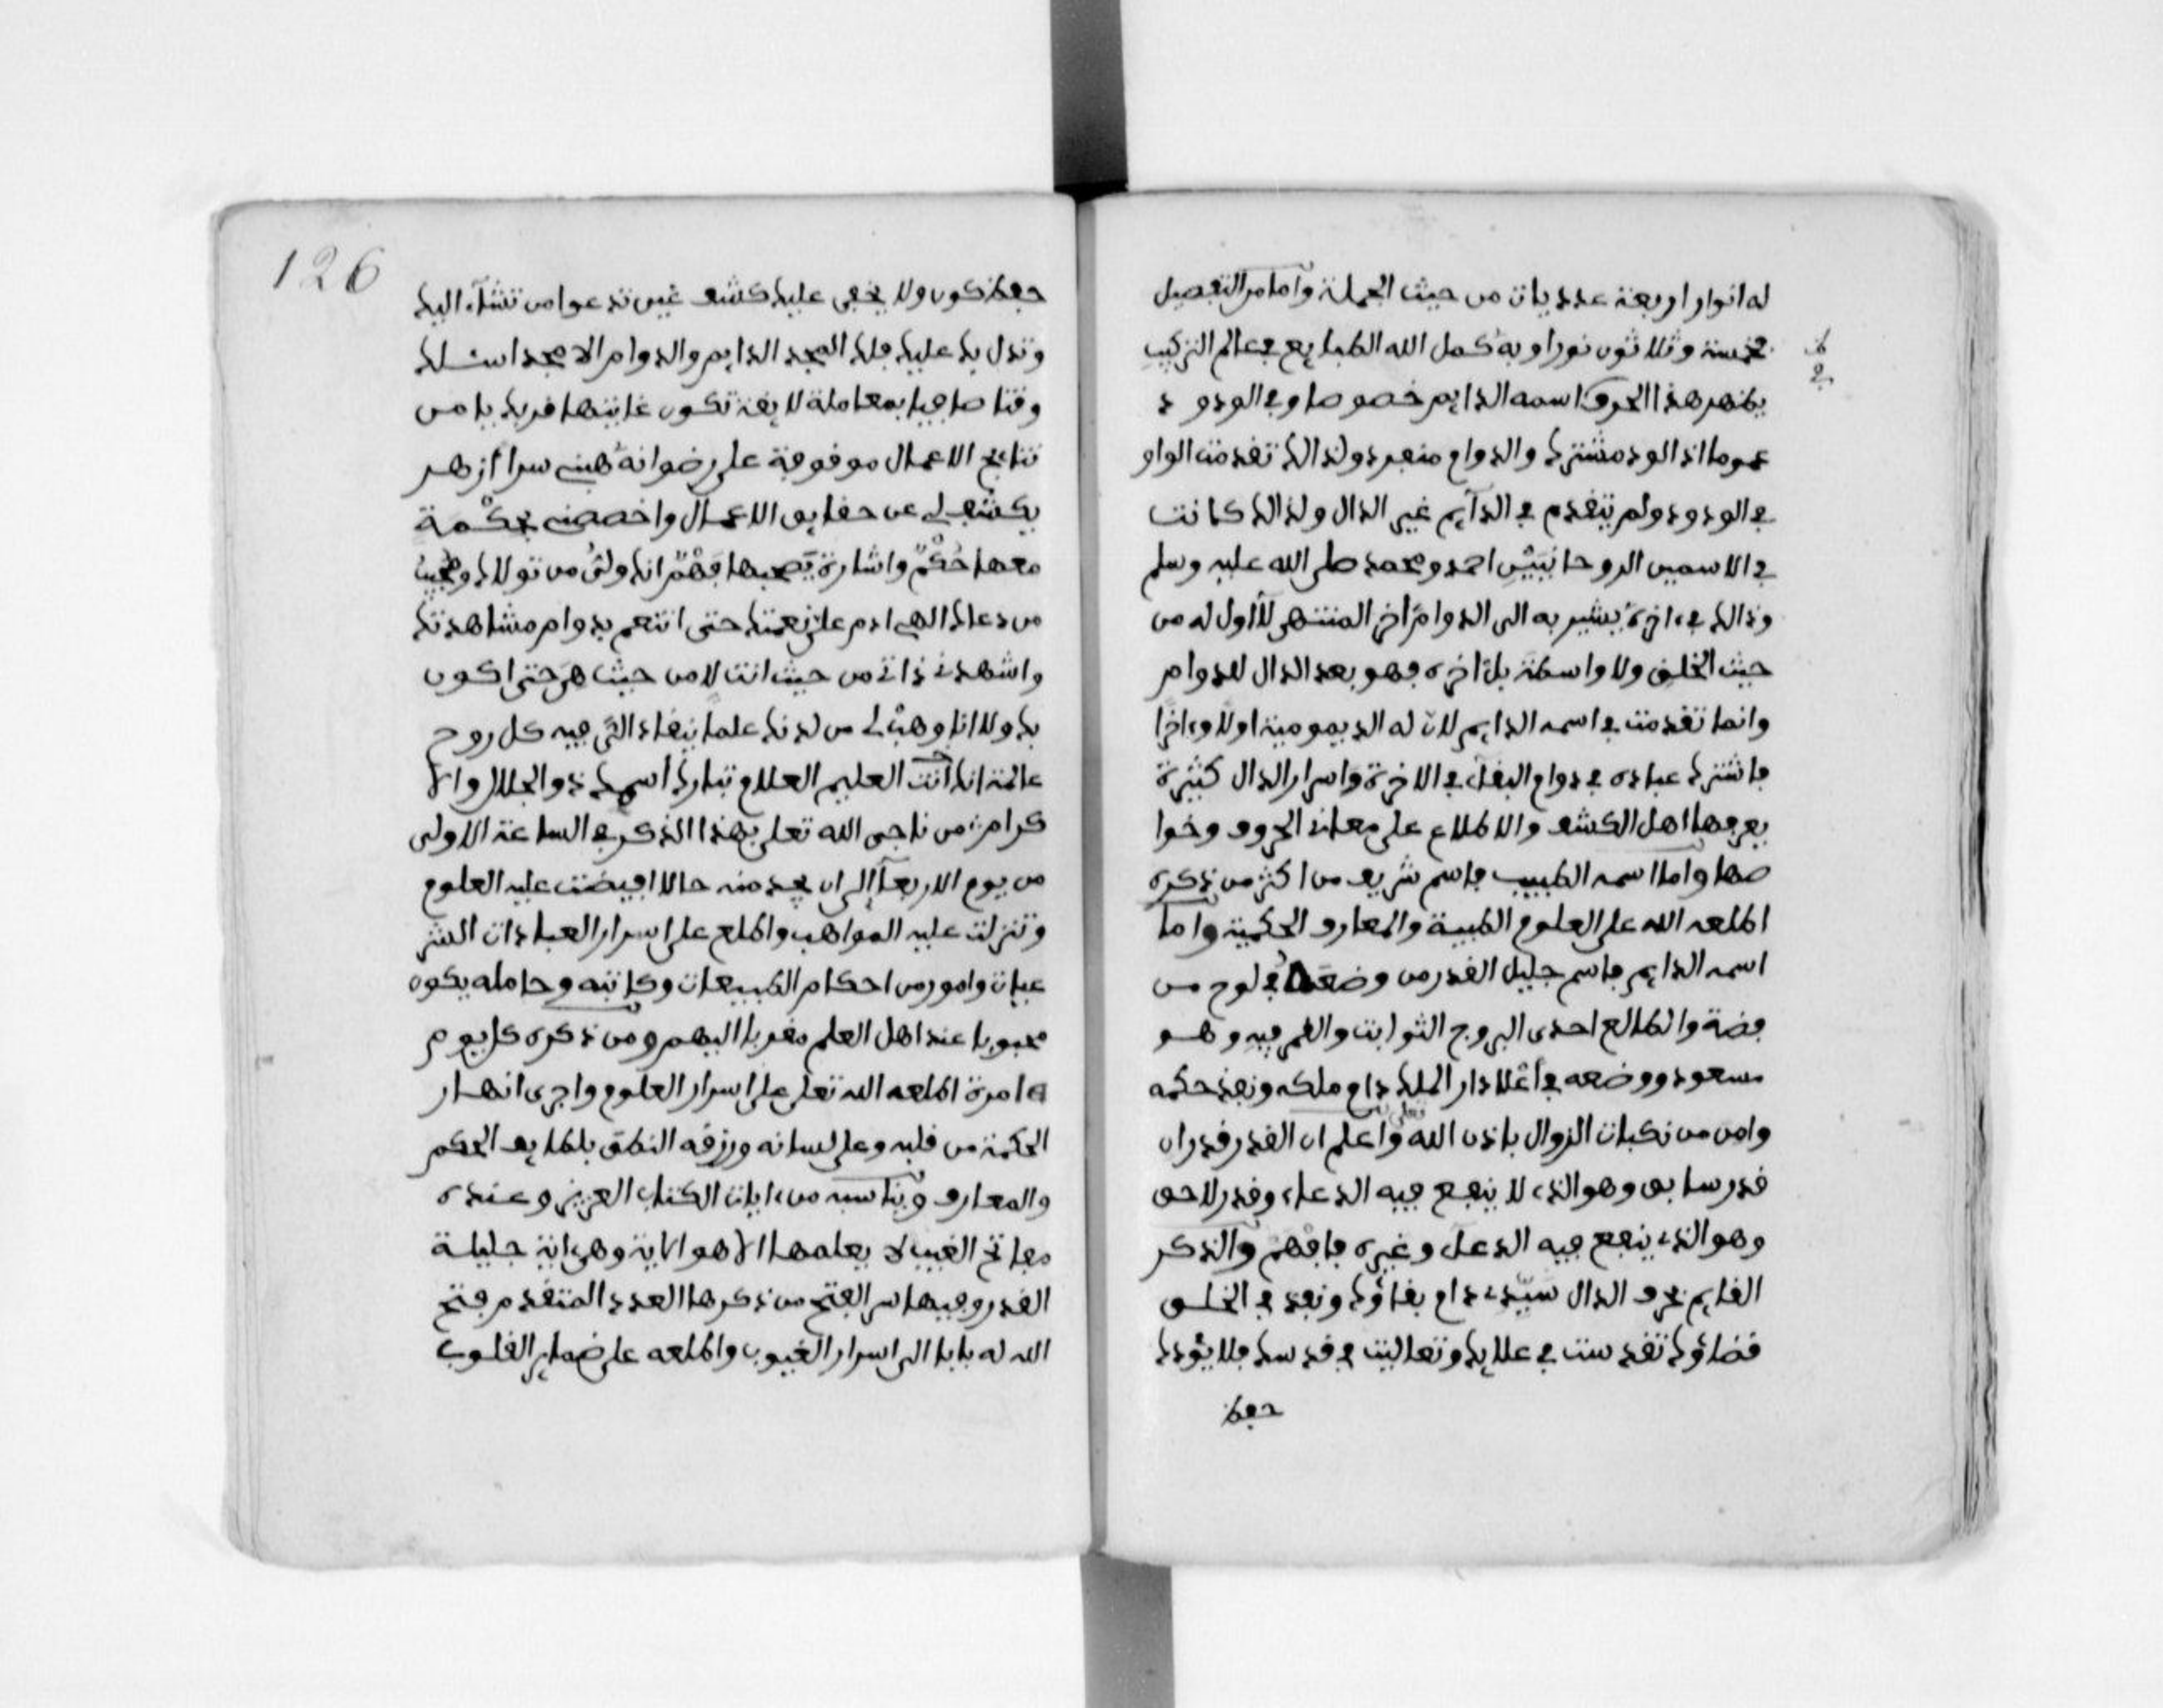 له انوار اربعة عدديات من حيث الجملة واما من التفصيل
فخمسة وثلاثون نورا وبه كمل الله الطبايع في عالم التركيب
يظهر هذا الحرف اسمه الدايم خصوصا وفي الودود
عموما اذ الود مشترك والدوام منفرد ولذالك تقدمت الواو
في الودود ولم يتقدم في الدآيم غير الدال ولذالك كانت
في الاسمين الروحانيين احمد ومحمد صلى الله عليه وسلم
وذالك في ءاخره يشير به الى الدوام ءاخر المنتهى لا اول له من
حيث الخلق ولا واسطة بل ءاخره فهو بعد الدال للدوام
وانما تقدمت في اسمه الدايم لان له الديمومية اولا وءاخرا
فاشترك عباده في دوام البقآء في الاخرة واسرار الدال كثيرة
يعرفها اهل الكشف والاطلاع على معاني الحروف وخوا
صها واما اسمه الطبيب فاسم شريف من اكثر من ذكره
اطلعه الله على العلوم الطبية والمعارف الحكمية واما
اسمه الدايم فاسم جليل القدر من وضعه في لوح من
فضة والطالع احدى البروج الثوابت والقمر فيه وهو
مسعود ووضعه في أعْلا دار الملك دام ملكه ونفذ حكمه
وامن من نكبات الزوال باذن الله تعلى واعلم ان القدر قدران
قدر سابق وهو الذي لا ينفع فيه الدعاء وقدر لاحق
وهو الذي ينفع فيه الدعآء وغيره فافهم والذكر
القايم بحرف الدال سَيّدي دام بقاؤك ونفذ في الخلق
قضاؤك تقدست في علايك وتعاليت في قدسك فلا يؤدك
حفظ
126
حفظ كون ولا يخفى عليك كشف غيب تدعوا من تشآء اليك
وتدل بك عليك فلك المجد الدايم والدوام الامجد اسئلك
وقتا صافيا بمعاملة لايقة تكون غايتها قربك يا من
نتايج الاعمال موقوفة على رضوانه هبني سرا أزهر
يكشف لي عن حقايق الاعمال واخصصني بحكْمة
معها حُكْمٌ واشارة يَصحبها فَهْمٌ انك ولىُّ من تولاك ومجيب
من دعاك الهي ادم على نعمتك حتى اتنعم بدوام مشاهدتك
واشهدني ذاتي من حيث انت لا من حيث هي حتى اكون
بك ولا انا وهبْ لي من لدنك علما ينقاد اليَّ فيه كل روح
عالمة انك أنت العليم العلام تبارك أسمك ذو الجلال والا
كرام من ناجى الله تعلى بهذا الذكر في الساعة الاولى
من يوم الاربعآ الى ان يجد منه حالا افيضت عليه العلوم
وتنزلت عليه المواهب واطلع على اسرار العبادات الشر
عيات وامور من احكام الطبيعات وكاتبه وحامله يكون
محبوبا عند اهل العلم مقربا اليهم ومن ذكره كل يوم
امرة اطلعه الله تعلى على اسرار العلوم واجرى انهار
الحكمة من قلبه وعلى لسانه ورزقه النطق بلطايف الحكم
والمعارف ويناسبه من ءايات الكتاب العزيز وعنده
مفاتح الغيب لا يعلمها الا هو الاية وهي اية جليلة
القدر وفيها سر الفتح من ذكرها العدد المتقدم فتح
الله له بابا الى اسرار الغيوب واطلعه على ضماير القلوب